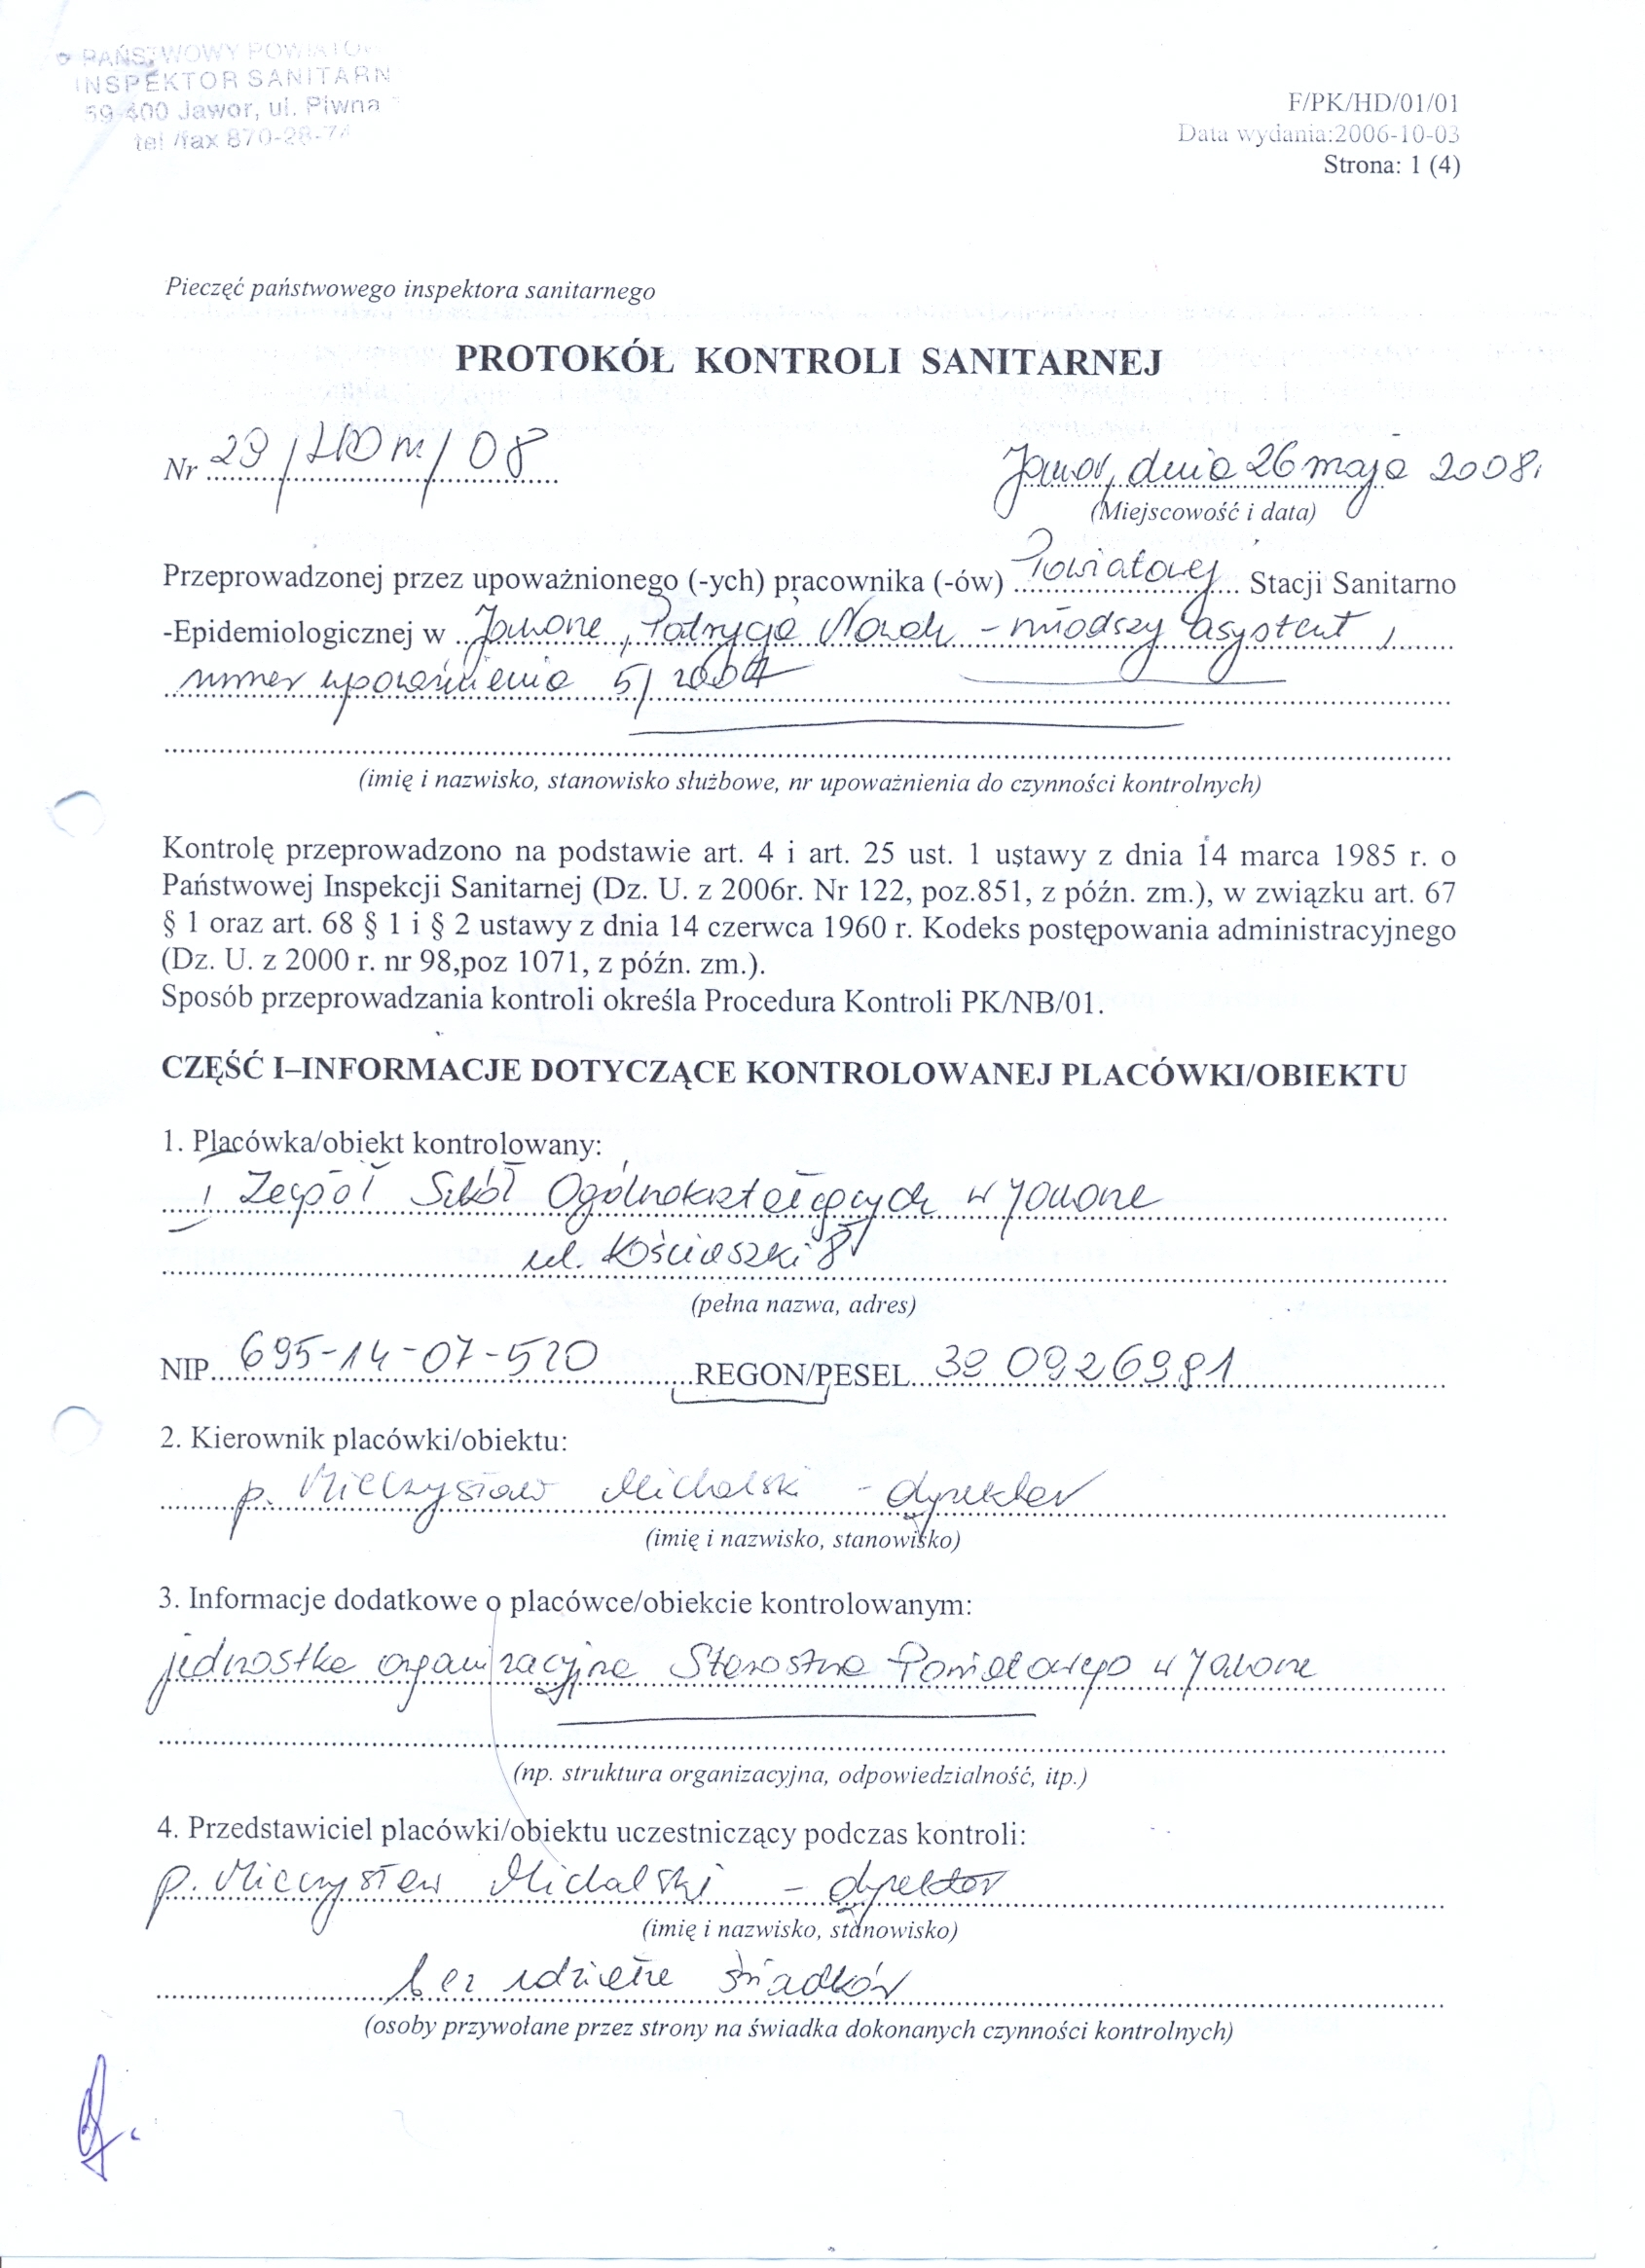 PAŃSTWOWY POWIATOW
INSPEKTOR SANITARN
59-400 Jawor, ul. Piwna
tel/fax 870-28-74
F/PK/HD/01/01
Data wydania:2006-10-03
Strona: 1 (4)
Pieczęć państwowego inspektora sanitarnego
PROTOKÓŁ KONTROLI SANITARNEJ
Nr 29/HDM/08
Jawor, dnia 26 maja 2008r
(Miejscowość i data)
Przeprowadzonej przez upoważnionego (-ych) pracownika (-ów) Powiatowej Stacji Sanitarno
-Epidemiologicznej w Jaworze, Patrycja Nowak - młodszy asystent,
numer upoważnienia 5/2004
(imię i nazwisko, stanowisko służbowe, nr upoważnienia do czynności kontrolnych)
Kontrolę przeprowadzono na podstawie art. 4 i art. 25 ust. 1 ustawy z dnia 14 marca 1985 r. o
Państwowej Inspekcji Sanitarnej (Dz. U. z 2006r. Nr 122, poz.851, z późn. zm.), w związku art. 67
§ 1 oraz art. 68 § 1 i § 2 ustawy z dnia 14 czerwca 1960 r. Kodeks postępowania administracyjnego
(Dz. U. z 2000 r. nr 98,poz 1071, z późn. zm.).
Sposób przeprowadzania kontroli określa Procedura Kontroli PK/NB/01.
CZĘŚĆ I–INFORMACJE DOTYCZĄCE KONTROLOWANEJ PLACÓWKI/OBIEKTU
1. Placówka/obiekt kontrolowany:
Zespół Szkół Ogólnokształcących w Jaworze
ul. Kościuszki 8
(pełna nazwa, adres)
NIP 695-14-07-520 REGON/PESEL 390926981
2. Kierownik placówki/obiektu:
p. Mieczysław Michalski - dyrektor
(imię i nazwisko, stanowisko)
3. Informacje dodatkowe o placówce/obiekcie kontrolowanym:
jednostka organizacyjna Starostwa Powiatowego w Jaworze
(np. struktura organizacyjna, odpowiedzialność, itp.)
4. Przedstawiciel placówki/obiektu uczestniczący podczas kontroli:
p. Mieczysław Michalski - dyrektor
(imię i nazwisko, stanowisko)
bez udziału świadków
(osoby przywołane przez strony na świadka dokonanych czynności kontrolnych)